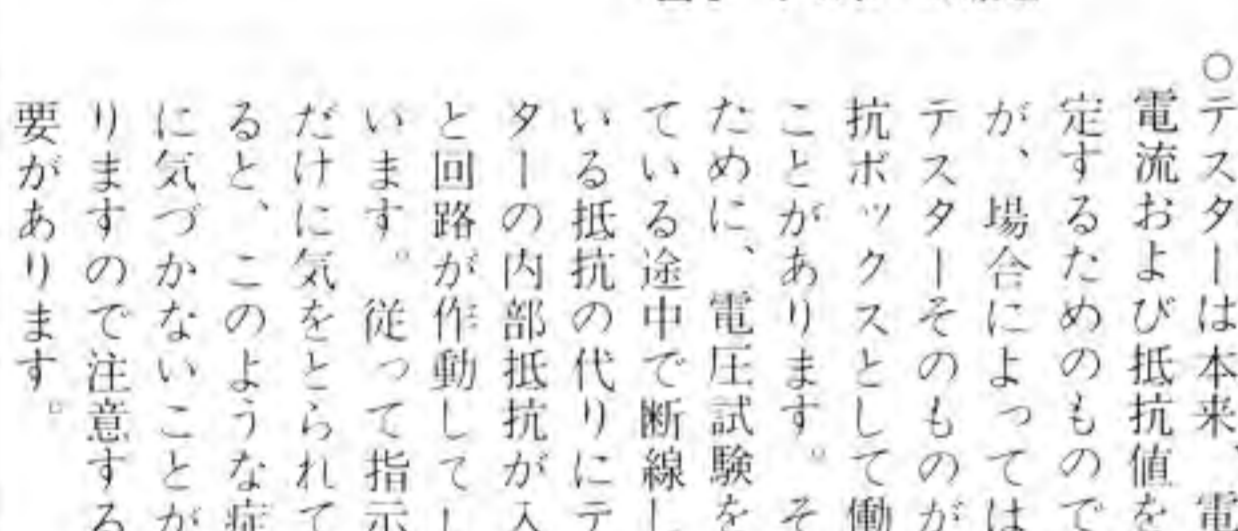 ○テスターは本来、電
電流および抵抗値を
定するためのもので
が、場合によっては
テスターそのものが
抗ボックスとして働
ことがあります。そ
ために、電圧試験を
ている途中で断線し
いる抵抗の代りにテ
ターの内部抵抗が入
と回路が作動してし
います。従って指示
だけに気をとられて
ると、このような症
に気づかないことが
りますので注意する
要があります。